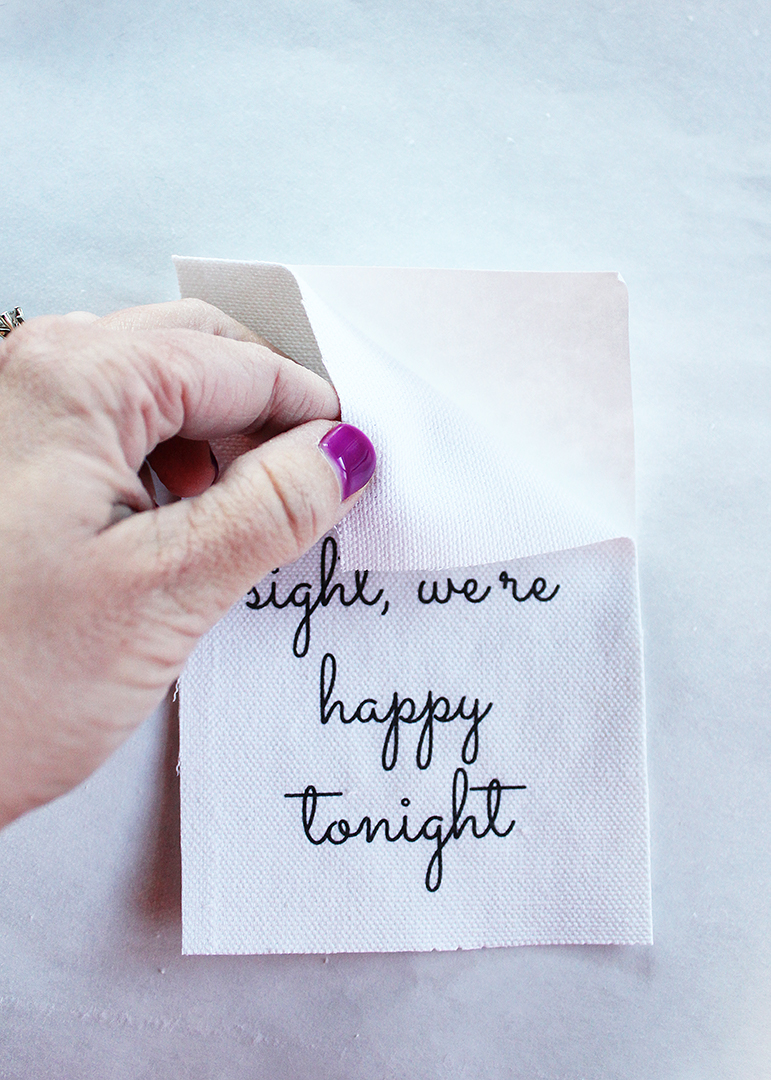 sight, we're
happy
tonight